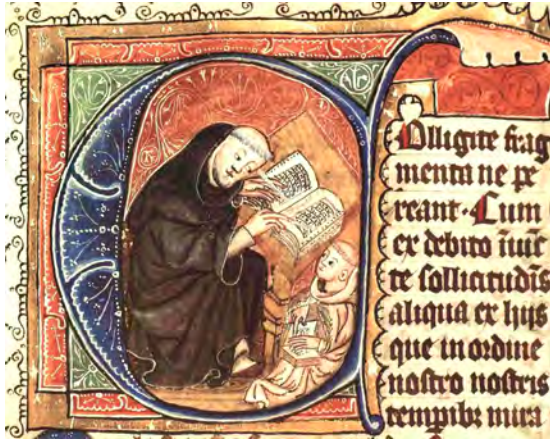 COlligite frag
menta ne pe
reant. Cum
ex debito iniūc
te sollicitudīs
aliqua ex hijs
que in ordine
nostro nostris
temp̲ibꝫ mira